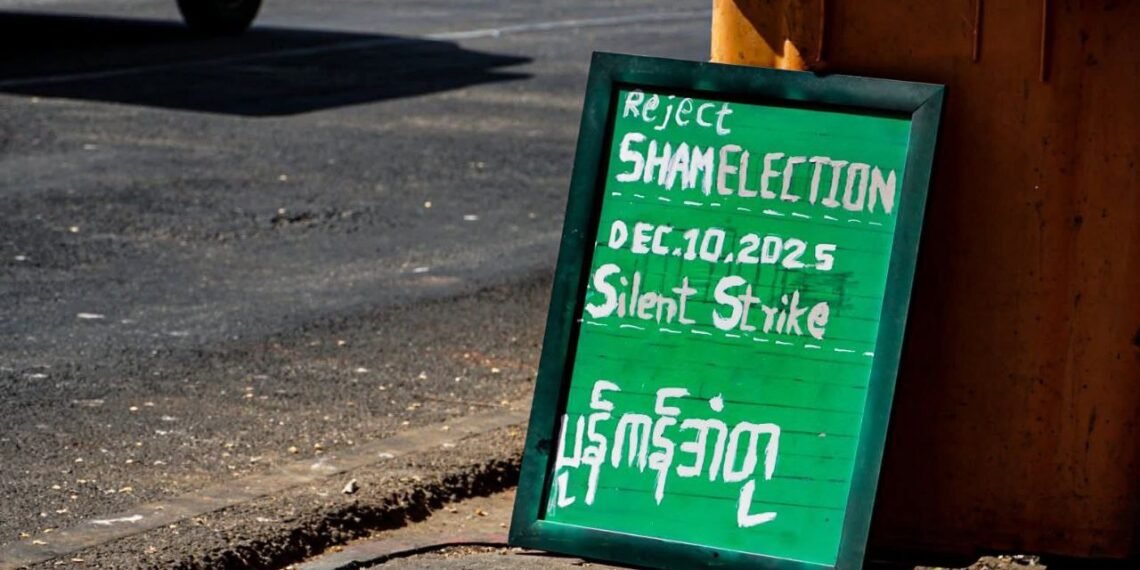 Reject
SHAM ELECTION
DEC.10.2025
Silent Strike
ပွန်ကန်အံတု